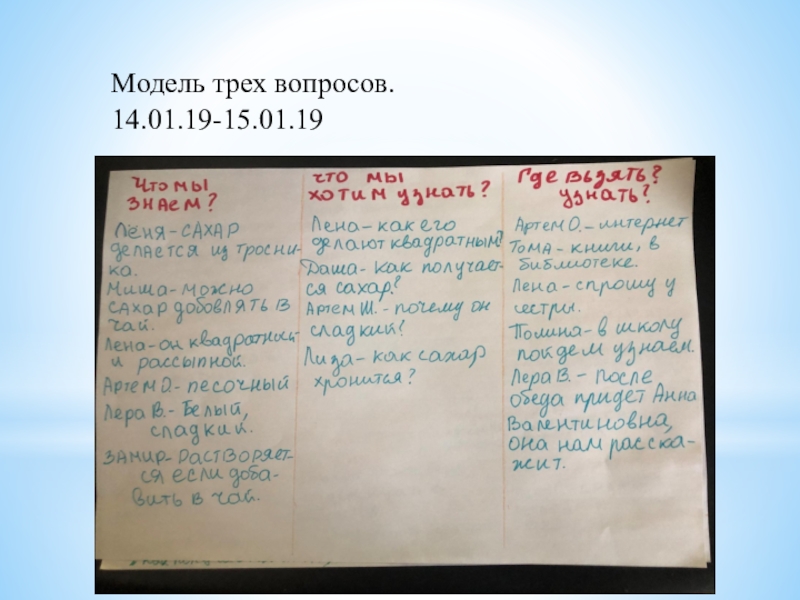 Модель трех вопросов.
14.01.19-15.01.19
Что мы
знаем?
Лёня-САХАР
делается из тросни-
ка.
Миша-можно
сахар добовлять в
чай.
Лена-он квадратный
и рассыпной.
Артем О.-песочный
Лера В.-Белый,
сладкий.
ЗАМИР-растворяет-
ся если доба-
вить в чай.
что мы
хотим узнать?
Лена-как его
делают квадратным?
Даша-как получает-
ся сахар?
Артем Ш.-почему он
сладкий?
Лиза-как сахар
хронится?
Где взять?
узнать?
Артем О.-интернет
Тома-книги, в
библиотеке.
Лена-спрошу у
сестры.
Полина-в школу
пойдем узнаем.
Лера В.-После
обеда придет Анна
Валентиновна,
она нам расска-
жит.